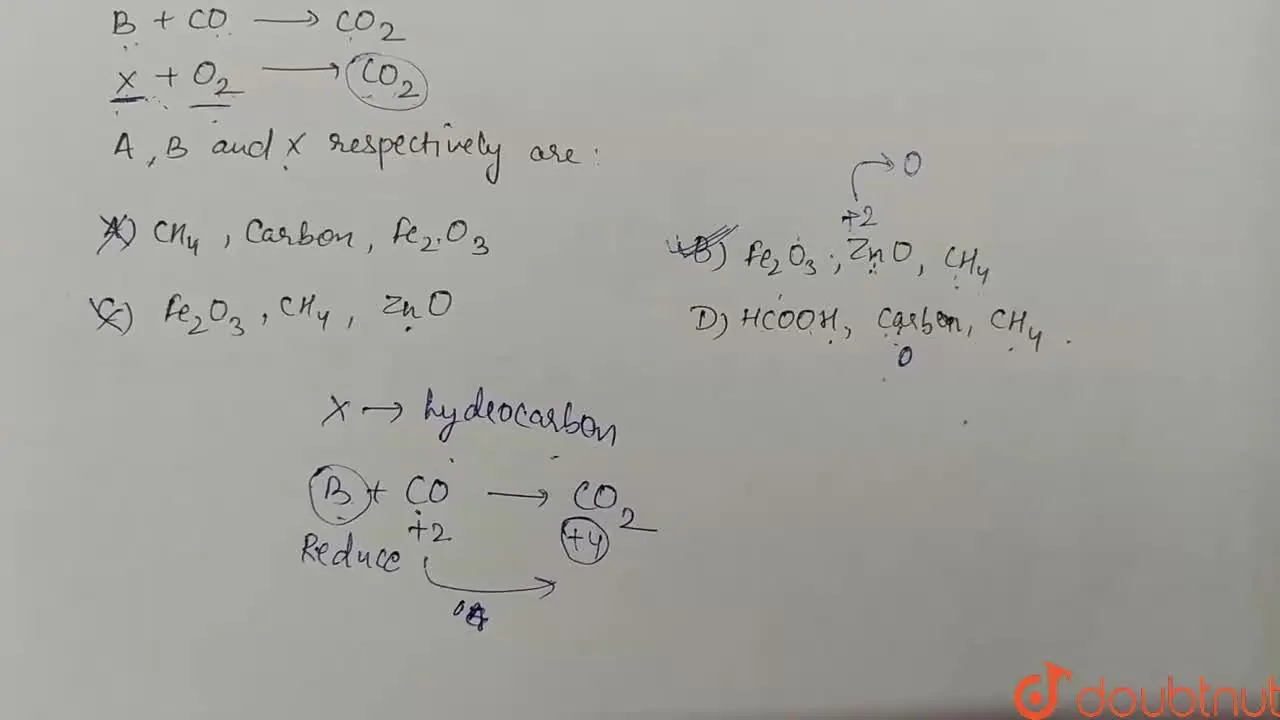 B + CO → CO2
X + O2 → CO2
A, B and X respectively are:
A) CH4, Carbon, Fe2O3
B) Fe2O3, ZnO, CH4
+2 → 0
C) Fe2O3, CH4, ZnO
D) HCOOH, Carbon, CH4.
0
X → hydeocarbon
B + CO → CO2
+2 +4
Reduce
doubtnut